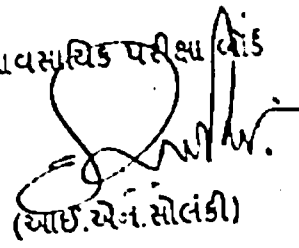 વસાયિક પરીક્ષા બોર્ડ
(આઈ.એન.સોલંકી)